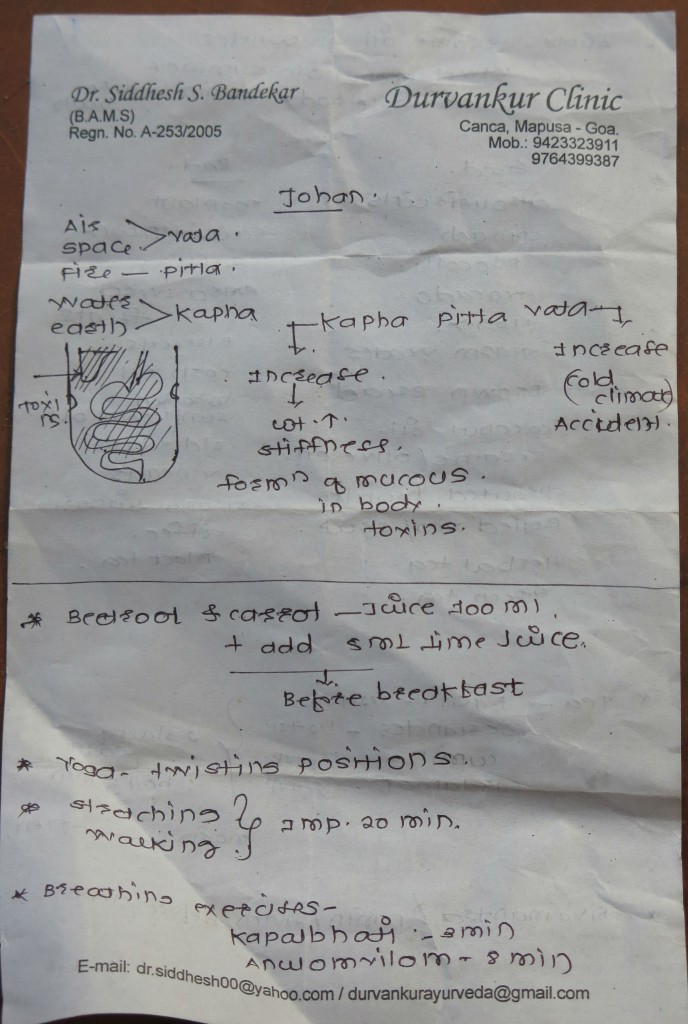 Dr. Siddhesh S. Bandekar
(B.A.M.S)
Regn. No. A-253/2005
Durvankur Clinic
Canca, Mapusa - Goa.
Mob.: 9423323911
9764399387
Johan.
Air
space > vata.
Fire — pitta.
water
earth > kapha
kapha pitta vata
Increase.
wt. ↑.
stiffness.
formn of mucous.
in body.
toxins.
Increase
(cold
climate)
Accident.
toxi
ns.
* Beetroot & carrot — Juice 100 ml.
+ add 5 ml lime Juice.
↓
Before breakfast
* Yoga - twisting positions.
* stretching
walking } Imp. 20 min.
* Breathing exercises -
kapalbhati - 3 min
Anulomvilom - 8 min
E-mail: dr.siddhesh00@yahoo.com / durvankurayurveda@gmail.com